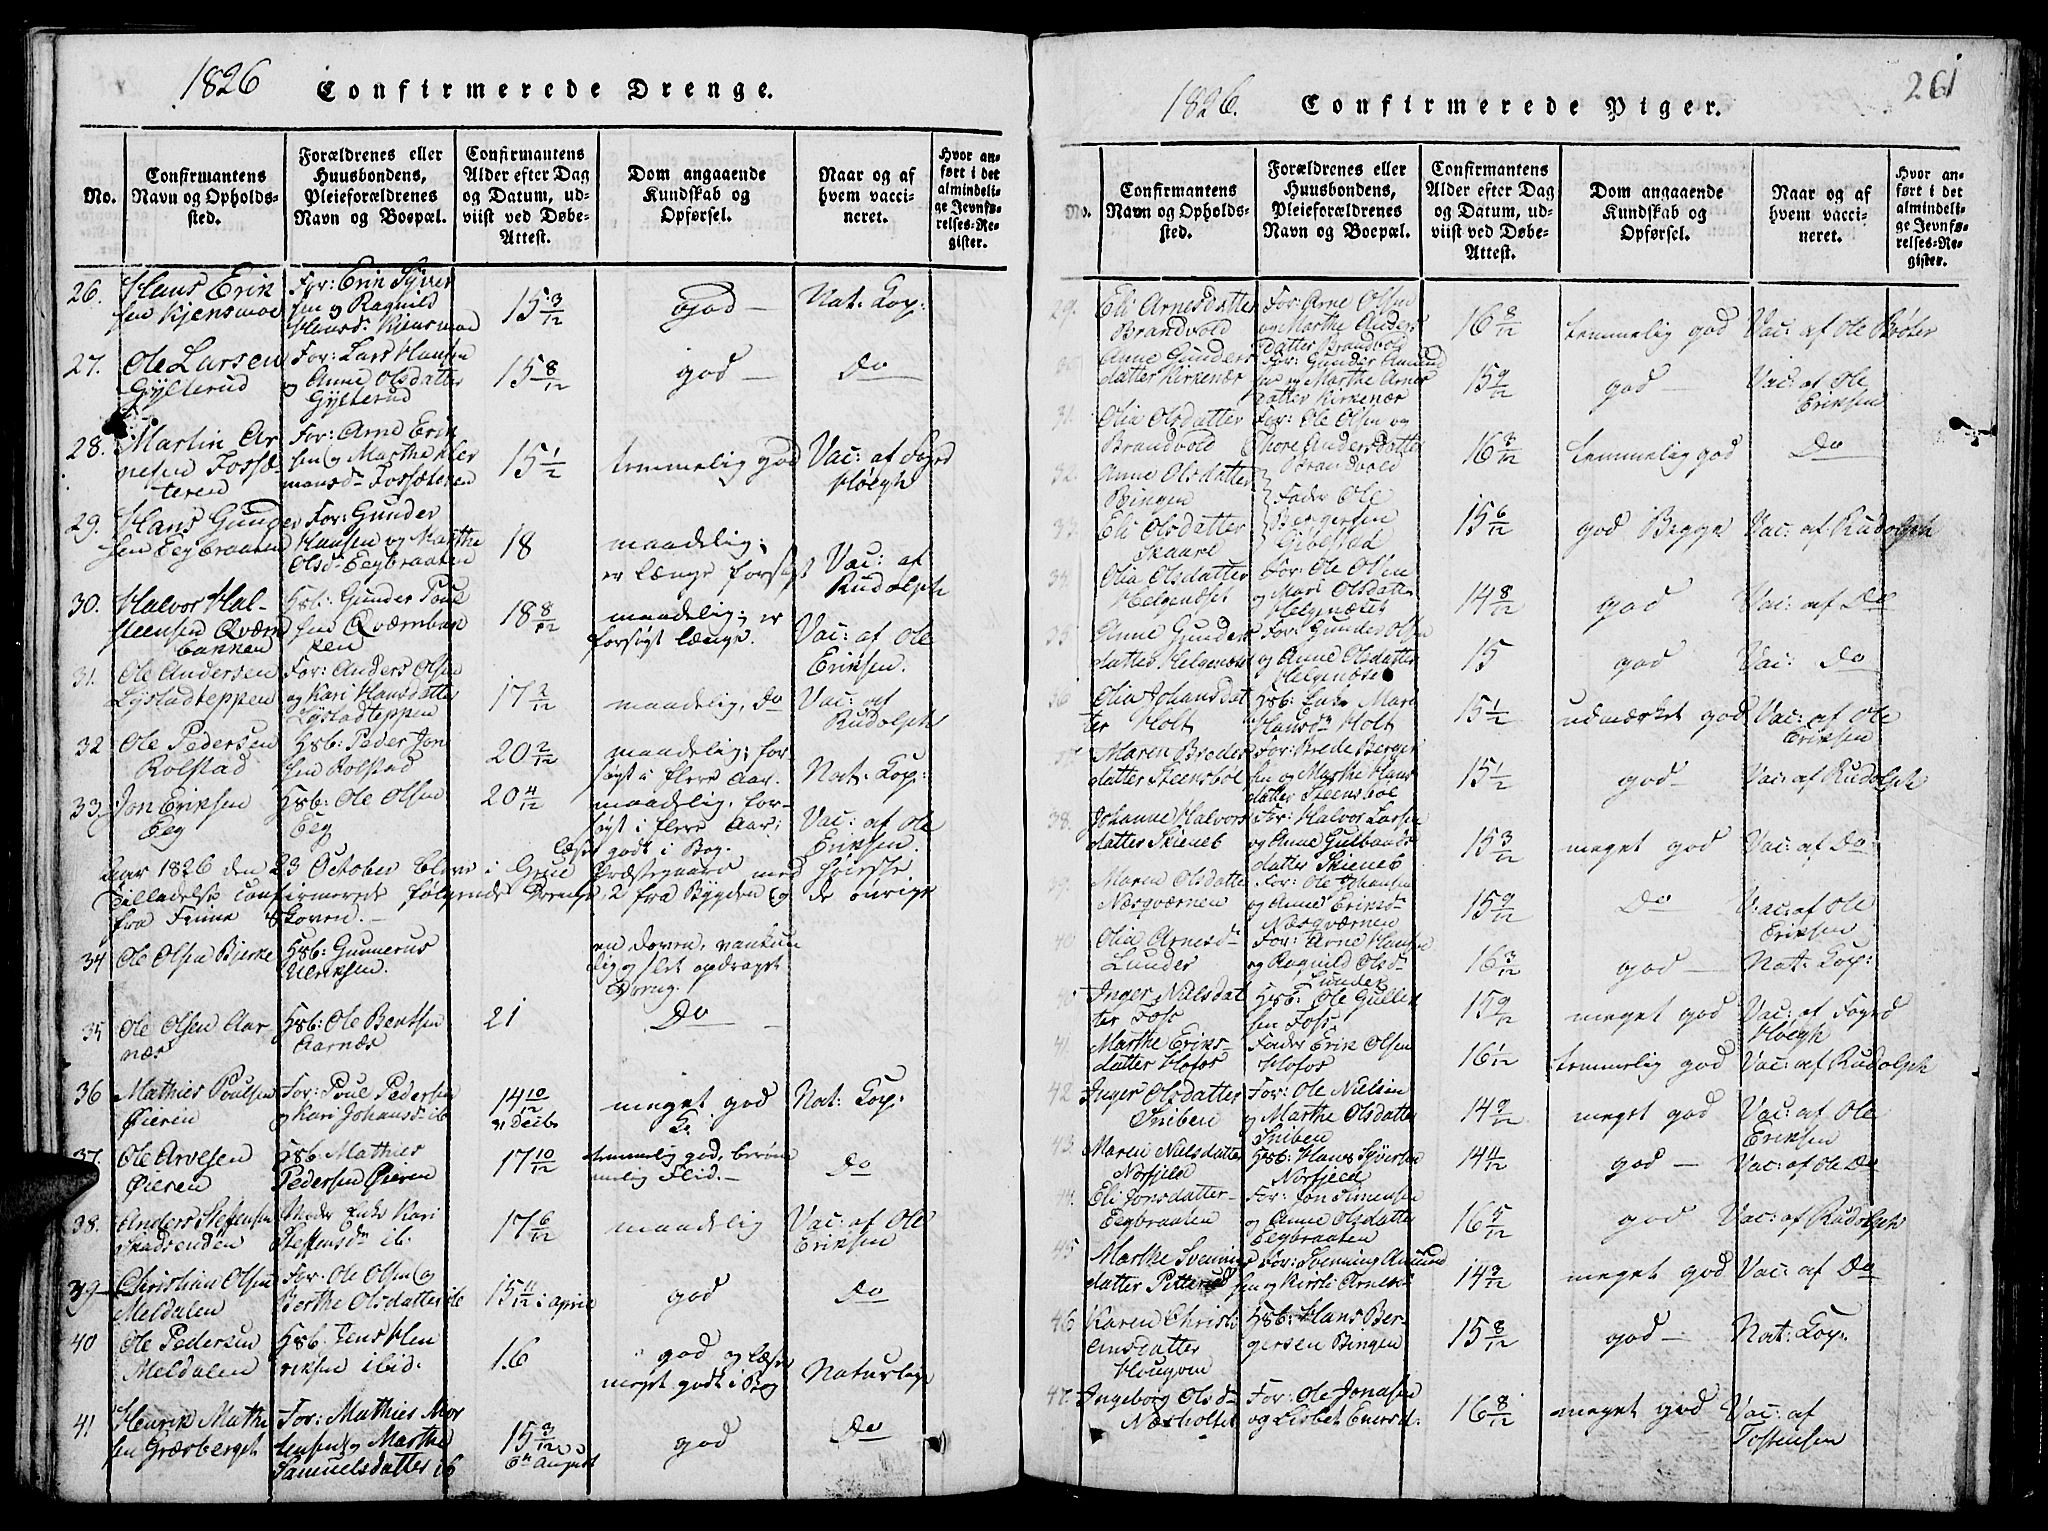 1826 Confirmerede Drenge.
No.
Confirmantens
Navn og Opholds-
sted.
Forældrenes eller
Huusbondens,
Pleieforældrenes
Navn og Boepæl.
Confirmantens
Alder efter Dag
og Datum, ud-
viist ved Døbe-
Attest.
Dom angaaende
Kundskab og
Opførsel.
Naar og af
hvem vacci-
neret.
Hvor an-
ført i det
almindeli-
ge Jevnfø-
relses-Re-
gister.
26. Hans Erik
sen Kjensmoe
For: Erik Syver
sen og Ragnild
Hansd: Kjensmoe
15 3/12
god —
Nat: Kop:
27. Ole Larsen
Gylterud
For: Lars Hansen
og Anne Olsdatter
Gylterud
15 8/12
god —
Do
28. Martin Ar
nesen Fossæ
teren
For: Arne Erik
sen og Marthe Her
mansd: Fossæteren
15 1/12
temmelig god
Vac: af Foged
Høegh
29. Hans Gunder
sen Eegbraaten
For: Gunder
Hansen og Marthe
Olsd: Eegbraaten
18
maadelig;
er længe forsøgt
Vac: af
Rudolph
30. Halvor Hal-
steensen Qværn
bakken
Hsb: Gunder Poul
sen Qværnbak
ken
18 8/12
maadelig; er
forsøgt længe.
Vac: af Ole
Eriksen.
31. Ole Andersen
Lystadteppen
For: Anders Olsen
og Kari Hansdatter
Lystadteppen
17 2/12
maadelig, Do
Vac: af
Rudolph
32 Ole Pedersen
Rolstad
Hsb: Peder Jon
sen Rolstad
20 2/12
maadelig; for
søgt i flere Aar.
Nat: Kop:
33. Jon Eriksen
Eeg
Hsb: Ole Olsen
Eeg
20 4/12
maadelig, for-
søgt i flere Aar;
læser godt i Bog.
Vac: af Ole
Eriksen.
Aar 1826 den 23 October blev i Grue Præstegaard med høieste
Tilladelse confirmerede følgende Drenge, 2 fra Bygden og de øvrige
fra Finne Skoven. —
34 Ole Olsen Bjerke
Hsb: Gunnerus
Ulriksen.
en doven, vankun
dig og slet opdraget
Dreng.
35 Ole Olsen Aar-
næs
Hsb: Ole Bentsen
Aarnæs
21
Do —
36 Mathies Poulsen
Øieren
For: Poul Pedersen
og Kari Johansd: ib
14 10/12
31 Decbr
meget god
Nat: Kop:
37. Ole Arvesen
Øieren
Hsb: Mathies
Pedersen Øieren
17 10/12
temmelig god, beröm
melig Flid. —
Do
38. Anders Steffensen
Skadsenden
Moder Enke Kari
Steffensdr ib.
17 6/12
maadelig
Vac: af Ole
Eriksen
39 Christian Olsen
Meldalen
For: Ole Olsen og
Berthe Olsdatter ib
15 4/12 i April
god
Do
40 Ole Pedersen
Meldalen
Hsb: Jens Hen
riksen ibid:
16
god og læser
meget godt i Bog
Naturlige
41 Henrik Mathi
sen Græsberget
For: Mathies Mor
tensen og Marthe
Samuelsdatter ib
15 3/12
6te August
god
Do
1826. Confirmerede Piger. 261
No.
Confirmantens
Navn og Opholds-
sted.
Forældrenes eller
Huusbondens,
Pleieforældrenes
Navn og Boepæl.
Confirmantens
Alder efter Dag
og Datum, ud-
viist ved Døbe-
Attest.
Dom angaaende
Kundskab og
Opførsel.
Naar og af
hvem vacci-
neret.
Hvor an-
ført i det
almindeli-
ge Jevnfø-
relses-Re-
gister.
29. Eli Arnesdatter
Brandvold
For: Arne Olsen
og Marthe Anders
datter Brandvold
16 8/12
temmelig god
Vac: af Ole Bröter
30. Anne Gunders
datter Kirkenær
For: Gunder Amund
sen og Marthe Arnes
datter Kirkenær
15 9/12
god —
Vac: af Ole
Eriksen
31. Olia Olsdatter
Brandvold
For: Ole Olsen og
Thore Andersdatter
Brandvold
16 3/12
temmelig god
Do
32. Anne Olsdatter
Bingen
33. Eli Olsdatter
Skaare
Fader Ole
Bergersen
15 6/12
god Begge
Vac: af Rudolph
34. Olia Olsdatter
Helgenæset
For: Ole Olsen
og Mari Olsdatter
Helgenæset
14 8/12
god
Vac: af Do
35 Anne Gunders
datter Helgenæset
For: Gunder Olsen
og Anne Olsdatter
Helgenæset
15
god
Vac: Do
36 Olia Johansdat
ter Holt
Hsb: Enke Mari
Hansdr Holt
15 1/12
udmærket god
Vac: af Ole
Eriksen
37. Maren Bredes
datter Steensböl
For: Brede Berger
sen og Marthe Hans
datter Steensböl
15 1/12
god —
Vac: af Rudolph
38. Johanne Halvors
datter Skieneb
For: Halvor Larsen
og Anne Gulbrands
datter Skieneb
15 3/12
meget god
Vac: af Do
39. Maren Olsdatter
Næsqværnen
For: Ole Johansen
og Anne Eriksdr
Næsqværnen
15 9/12
Do
Vac: af Ole
Eriksen
40 Olia Arnesdr
Lunder
For: Arne Hansen
og Ragnild Olsdr
Lunder
16 3/12
god —
Nat: Kop:
40 Inger Nielsdat
ter Foss
Hsb: Ole Gullik
sen Foss
15 9/12
meget god
Vac: af Foged
Høegh
41 Marthe Eriks-
datter Hofos
Fader Erik Olsen
Hofos
16 1/12
temmelig god
Vac: af Rudolph
42 Inger Olsdatter
Sniben
For: Ole Nielsen
og Marthe Olsdatter
Sniben
14 9/12
meget god
Vac: af Ole
Eriksen
43. Maren Nielsdatter
Norfjeld
Hsb: Hans Syversen
Norfjeld
14 4/12
god —
Vac: af Ole Do
44. Eli Jonsdatter
Eegbraaten
For: Jon Simensen
og Anne Olsdatter
Eegbraaten
16 5/12
god
Vac: af Rudolph
45 Marthe Svennings
datter Pitterud
For: Svenning Amund
sen og Kersti Arnesd:
14 9/12
meget god
Vac: af Do
46 Karen Christi
ansdatter
Hougven
Hsb: Hans Ber-
gersen Bingen
15 8/12
god —
Nat: Kop:
47. Ingeborg Olsdr
Næsholset
For: Ole Jonasen
og Lisbet Enersd:
16 8/12
meget god
Vac: af
Tostensen